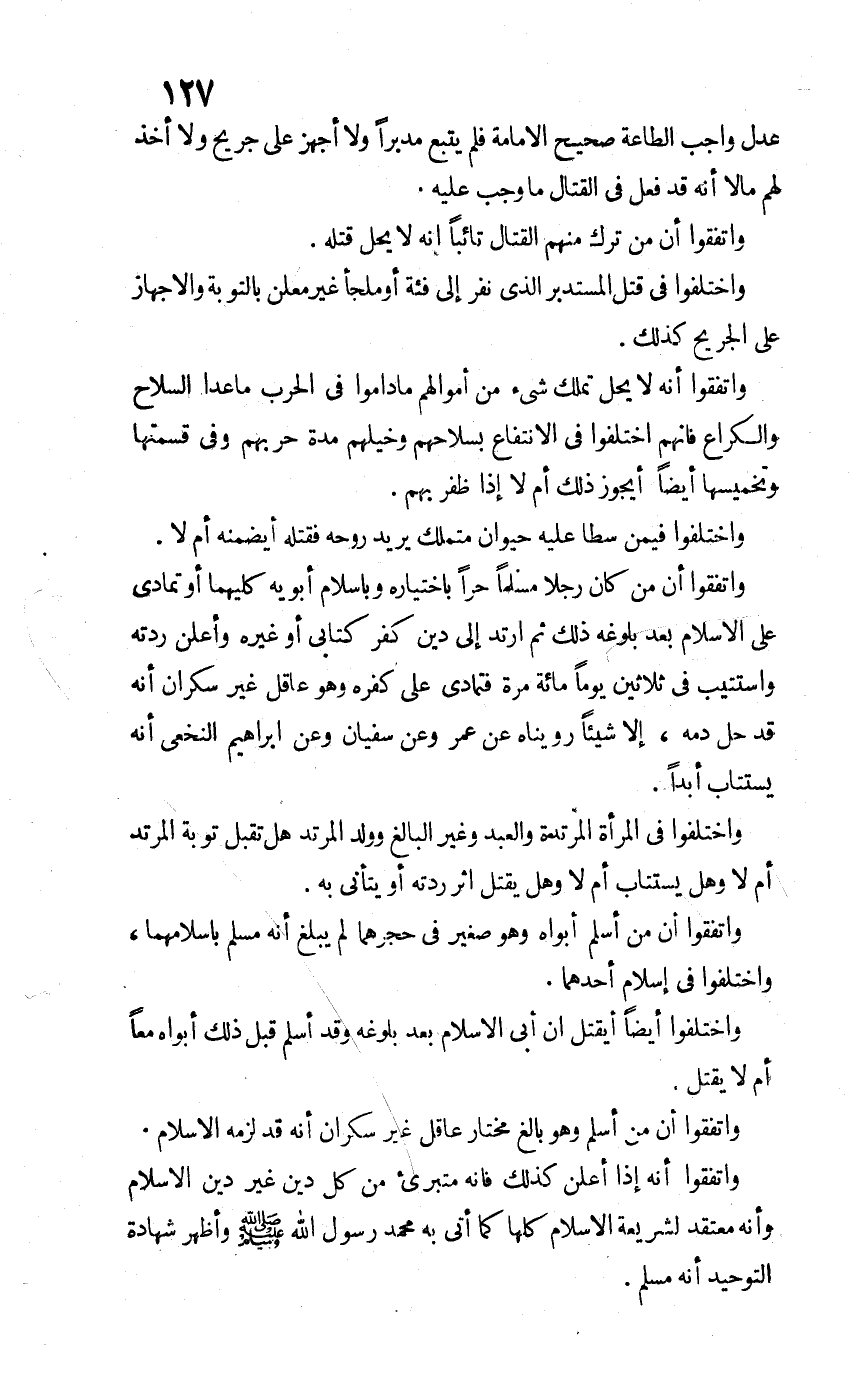 ١٢٧
عدل واجب الطاعة صحيح الامامة فلم يتبع مدبراً ولا أجهز على جريح ولا أخذ
لهم مالا أنه قد فعل فى القتال ما وجب عليه .
واتفقوا أن من ترك منهم القتال تائباً إنه لا يحل قتله .
واختلفوا فى قتل المستدبر الذى نفر إلى فئة أو ملجأ غير معلن بالتوبة والاجهاز
على الجريح كذلك .
واتفقوا أنه لا يحل تملك شىء من أموالهم ماداموا فى الحرب ماعدا السلاح
والكراع فانهم اختلفوا فى الانتفاع بسلاحهم وخيلهم مدة حربهم وفى قسمتها
وتخميسها أيضاً أيجوز ذلك أم لا إذا ظفر بهم .
واختلفوا فيمن سطا عليه حيوان متملك يريد روحه فقتله أيضمنه أم لا .
واتفقوا أن من كان رجلا مسلماً حراً باختياره وباسلام أبويه كليهما أو تمادى
على الاسلام بعد بلوغه ذلك ثم ارتد إلى دين كفر كتابى أو غيره وأعلن ردته
واستتيب فى ثلاثين يوماً مائة مرة فتمادى على كفره وهو عاقل غير سكران أنه
قد حل دمه ، إلا شيئاً رويناه عن عمر وعن سفيان وعن ابراهيم النخعى أنه
يستتاب أبداً .
واختلفوا فى المرأة المرتدة والعبد وغير البالغ وولد المرتد هل تقبل توبة المرتد
أم لا وهل يستتاب أم لا وهل يقتل اثر ردته أو يتأنى به .
واتفقوا أن من أسلم أبواه وهو صغير فى حجرهما لم يبلغ أنه مسلم باسلامهما ،
واختلفوا فى إسلام أحدهما .
واختلفوا أيضاً أيقتل ان أبى الاسلام بعد بلوغه وقد أسلم قبل ذلك أبواه معاً
أم لا يقتل .
واتفقوا أن من أسلم وهو بالغ مختار عاقل غير سكران أنه قد لزمه الاسلام .
واتفقوا أنه إذا أعلن كذلك فانه متبرئ من كل دين غير دين الاسلام
وأنه معتقد لشريعة الاسلام كلها كما أتى به محمد رسول الله ﷺ وأظهر شهادة
التوحيد أنه مسلم .